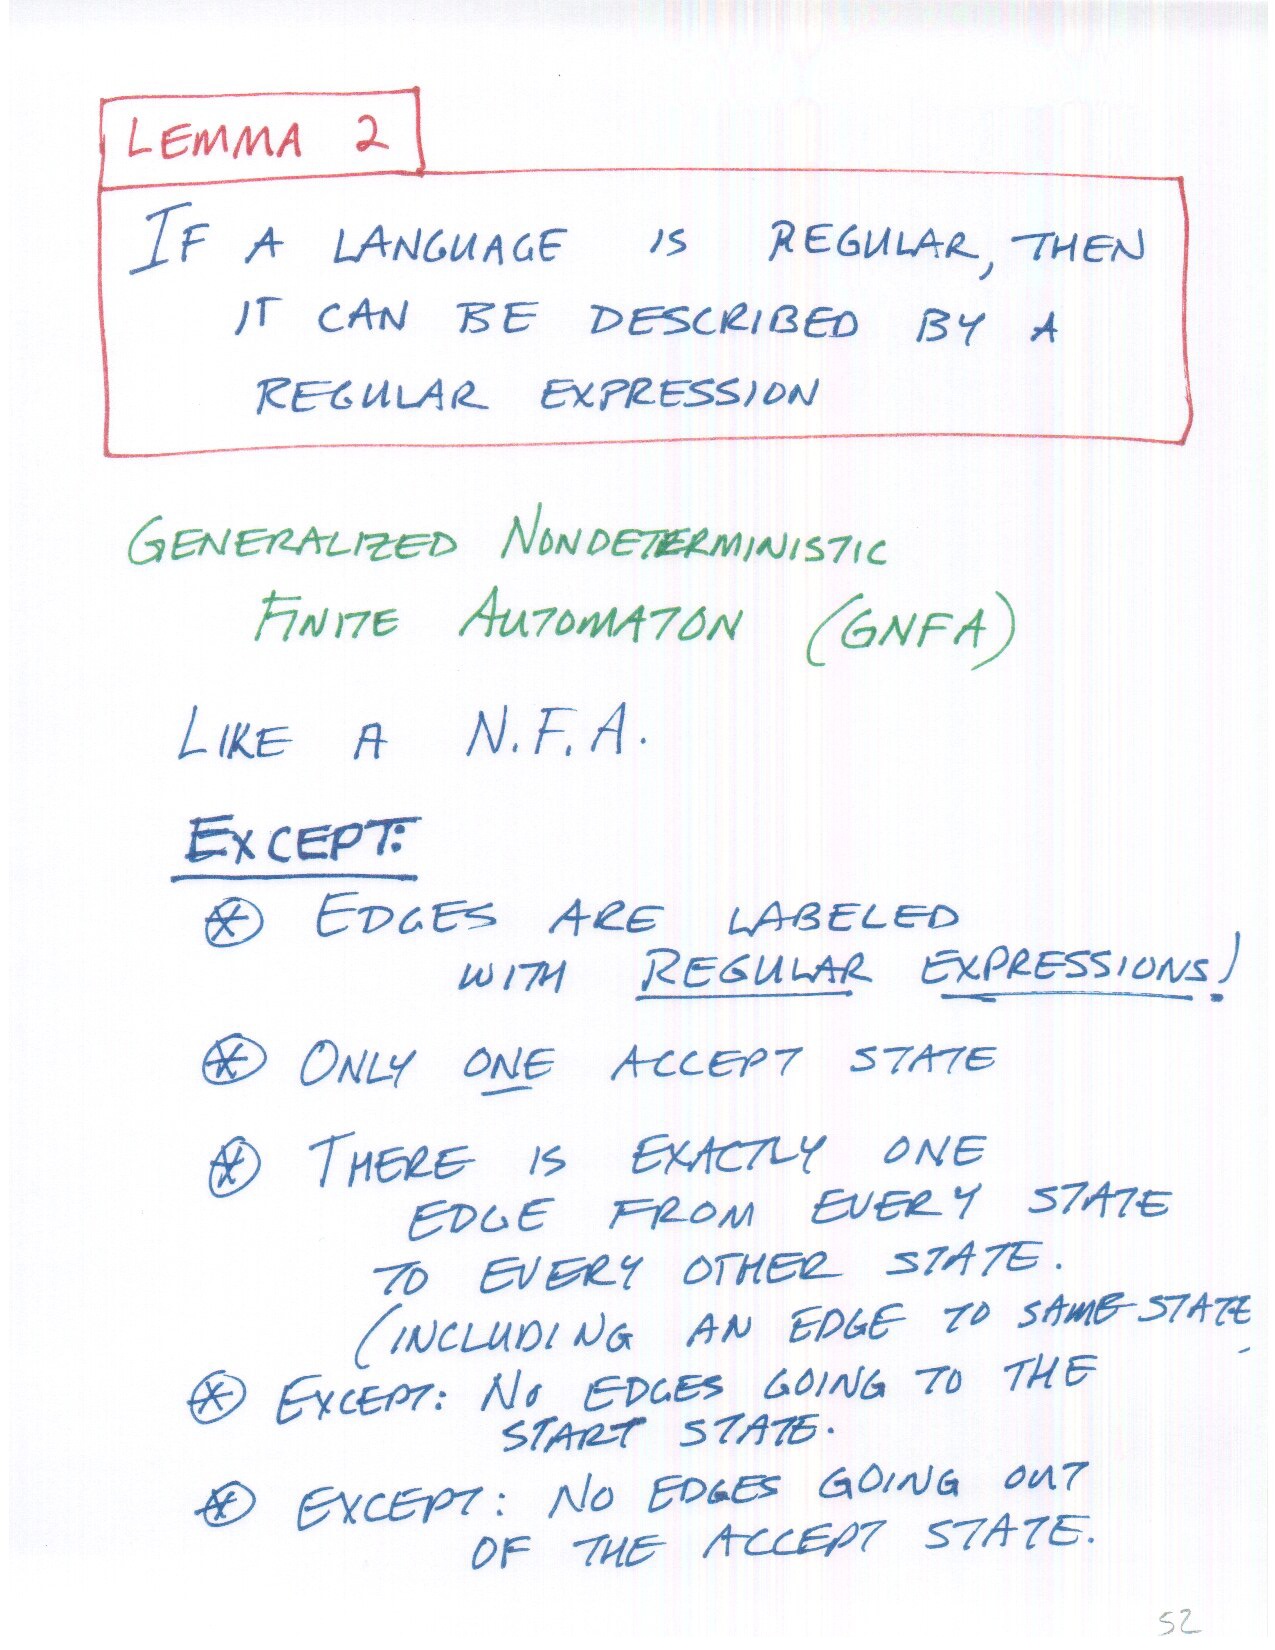 LEMMA 2
IF A LANGUAGE IS REGULAR, THEN
IT CAN BE DESCRIBED BY A
REGULAR EXPRESSION
GENERALIZED NONDETERMINISTIC
FINITE AUTOMATON (GNFA)
LIKE A N.F.A.
EXCEPT:
⊛ EDGES ARE LABELED
WITH REGULAR EXPRESSIONS!
⊛ ONLY ONE ACCEPT STATE
⊛ THERE IS EXACTLY ONE
EDGE FROM EVERY STATE
TO EVERY OTHER STATE.
(INCLUDING AN EDGE TO SAME STATE
⊛ EXCEPT: NO EDGES GOING TO THE
START STATE.
⊛ EXCEPT: NO EDGES GOING OUT
OF THE ACCEPT STATE.
52